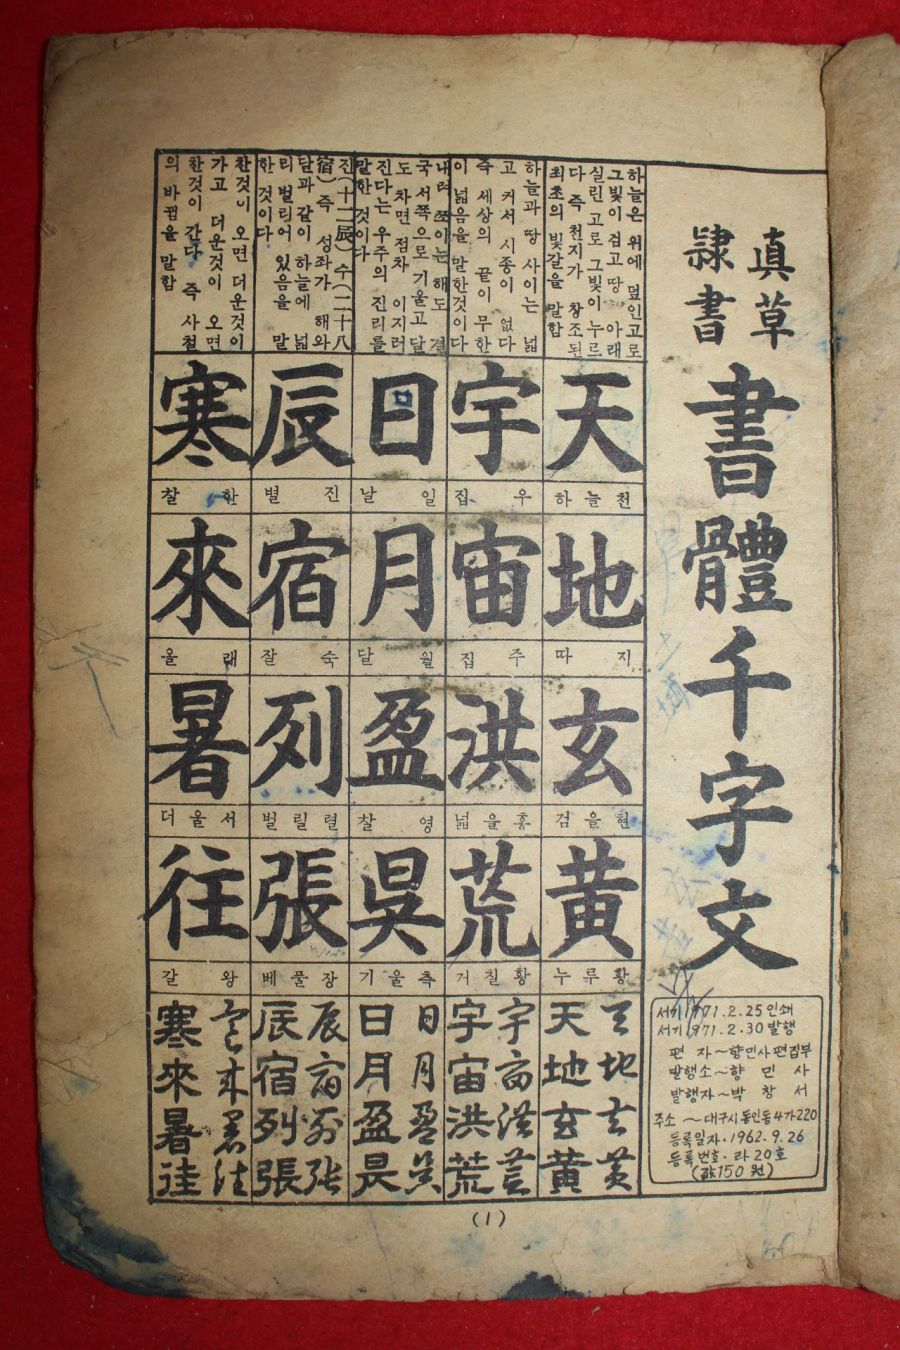 真草
隷書
書體千字文
서기1971.2.25인쇄
서기1971.2.30발행
편 자~향민사편집부
발행소~향 민 사
발행자~박 창 서
주소~대구시동인동4가220
등록일자·1962.9.26
등록번호·라20호
(값150원)
하늘은 위에 덮인고로
그빛이 검고 땅 아래
실린고로 그빛이 누르
다 즉 천지가 창조된
최초의 빛갈을 말함
天
하늘천
地
따지
玄
검을현
黄
누루황
하늘과 땅 사이는 넓
고 커서 시종이 없다
즉 세상의 끝이 무한
이 넓음을 말한것이다
宇
집우
宙
집주
洪
넓을홍
荒
거칠황
국 서쪽으로 기울고 달
도 차면 점차 이지러
진다는 우주의 진리를
말한 것이다
日
날일
月
달월
盈
찰영
昃
기울측
진(十二辰) 수(二十八
宿) 즉 성좌가 해와
달과 같이 하늘에 넓
리 벌리어 있음을 말
한 것이다
辰
별진
宿
잘숙
列
벌릴렬
張
베풀장
찬것이 오면 더운것이
가고 더운것이 오면
찬것이 간다 즉 사철
의 바뀜을 말함
寒
찰한
來
올래
暑
더울서
往
갈왕
天地玄黄
天地玄黄
宇宙洪荒
宇宙洪荒
日月盈昃
日月盈昃
辰宿列張
辰宿列張
寒來暑往
寒來暑往
(1)